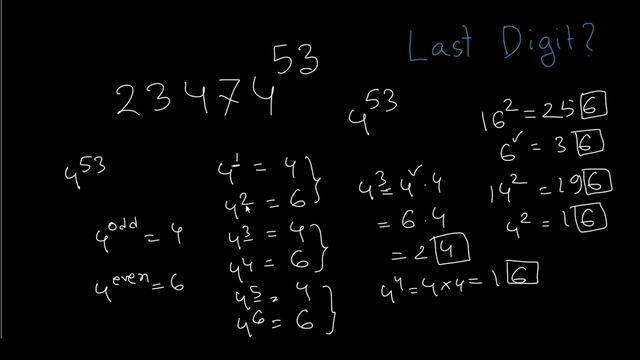 Last Digit?
23474^53
4^53
16^2 = 25 6
6^2 = 3 6
14^2 = 19 6
4^2 = 1 6
4^53
4^odd = 4
4^even = 6
4^1 = 4
4^2 = 6
4^3 = 4
4^4 = 6
4^5 = 4
4^6 = 6
4^3 = 4^2 · 4
= 6 · 4
= 2 4
4^4 = 4 × 4 = 1 6